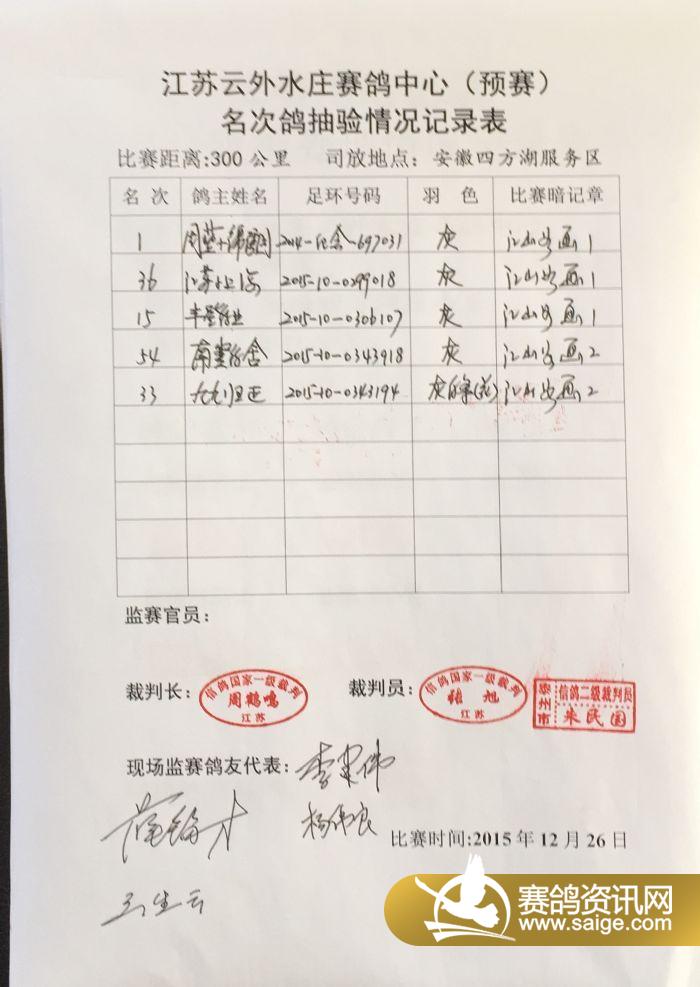 江苏云外水庄赛鸽中心（预赛）
名次鸽抽验情况记录表
比赛距离:300公里 司放地点：安徽四方湖服务区
名次 鸽主姓名 足环号码 羽色 比赛暗记章
1 2014-纪念-697031 灰 江山如画1
36 江苏 2015-10-0299018 灰 江山如画1
15 2015-10-0306107 灰 江山如画1
54 2015-10-0343918 灰 江山如画2
33 九九归正 2015-10-0343194 灰 江山如画2
监赛官员：
裁判长： 信鸽国家一级裁判 周鹤鸣 江苏 裁判员： 信鸽国家一级裁判 张旭 江苏 泰州市 信鸽二级裁判员 朱民国
现场监赛鸽友代表：
比赛时间:2015年12月26日
赛鸽资讯网
www.saige.com